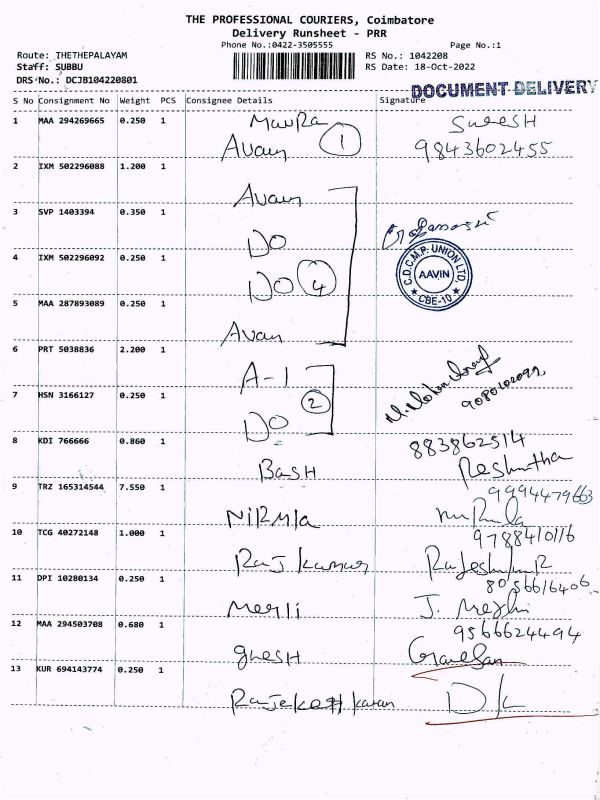 THE PROFESSIONAL COURIERS, Coimbatore
Delivery Runsheet - PRR
Phone No.:0422-3505555
Page No.:1
Route: THETHEPALAYAM
RS No.: 1042208
Staff: SUBBU
RS Date: 18-Oct-2022
DRS No.: DCJB104220801
DOCUMENT DELIVERY
S No Consignment No Weight PCS Consignee Details Signature
1 MAA 294269665 0.250 1
SureSH
Avain 1
9843602455
2 IXM 502296088 1.200 1
Avain
3 SVP 1403394 0.350 1
DO
4 IXM 502296092 0.250 1
DO 4
C.D.C.M.P. UNION LTD.
AAVIN
CBE-10
5 MAA 287893089 0.250 1
Avain
6 PRT 5038836 2.200 1
A-1
7 HSN 3166127 0.250 1
DO 2
9080102099
8 KDI 766666 0.860 1
883862514
BasH
Reshmtha
9 TRZ 165314544 7.550 1
9994479663
NiRMla
10 TCG 40272148 1.000 1
9788410116
Rajkumar
11 DPI 10280134 0.250 1
8056616406
Merli
12 MAA 294503708 0.680 1
9566624494
gnesH
13 KUR 694143774 0.250 1
D/L